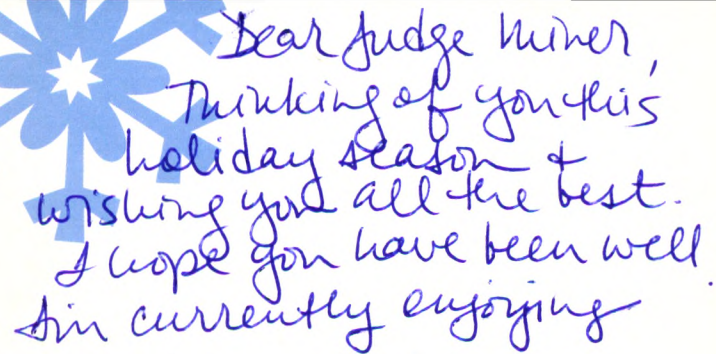 Dear Judge Miner,
Thinking of you this
holiday season +
wishing you all the best.
I hope you have been well.
I'm currently enjoying